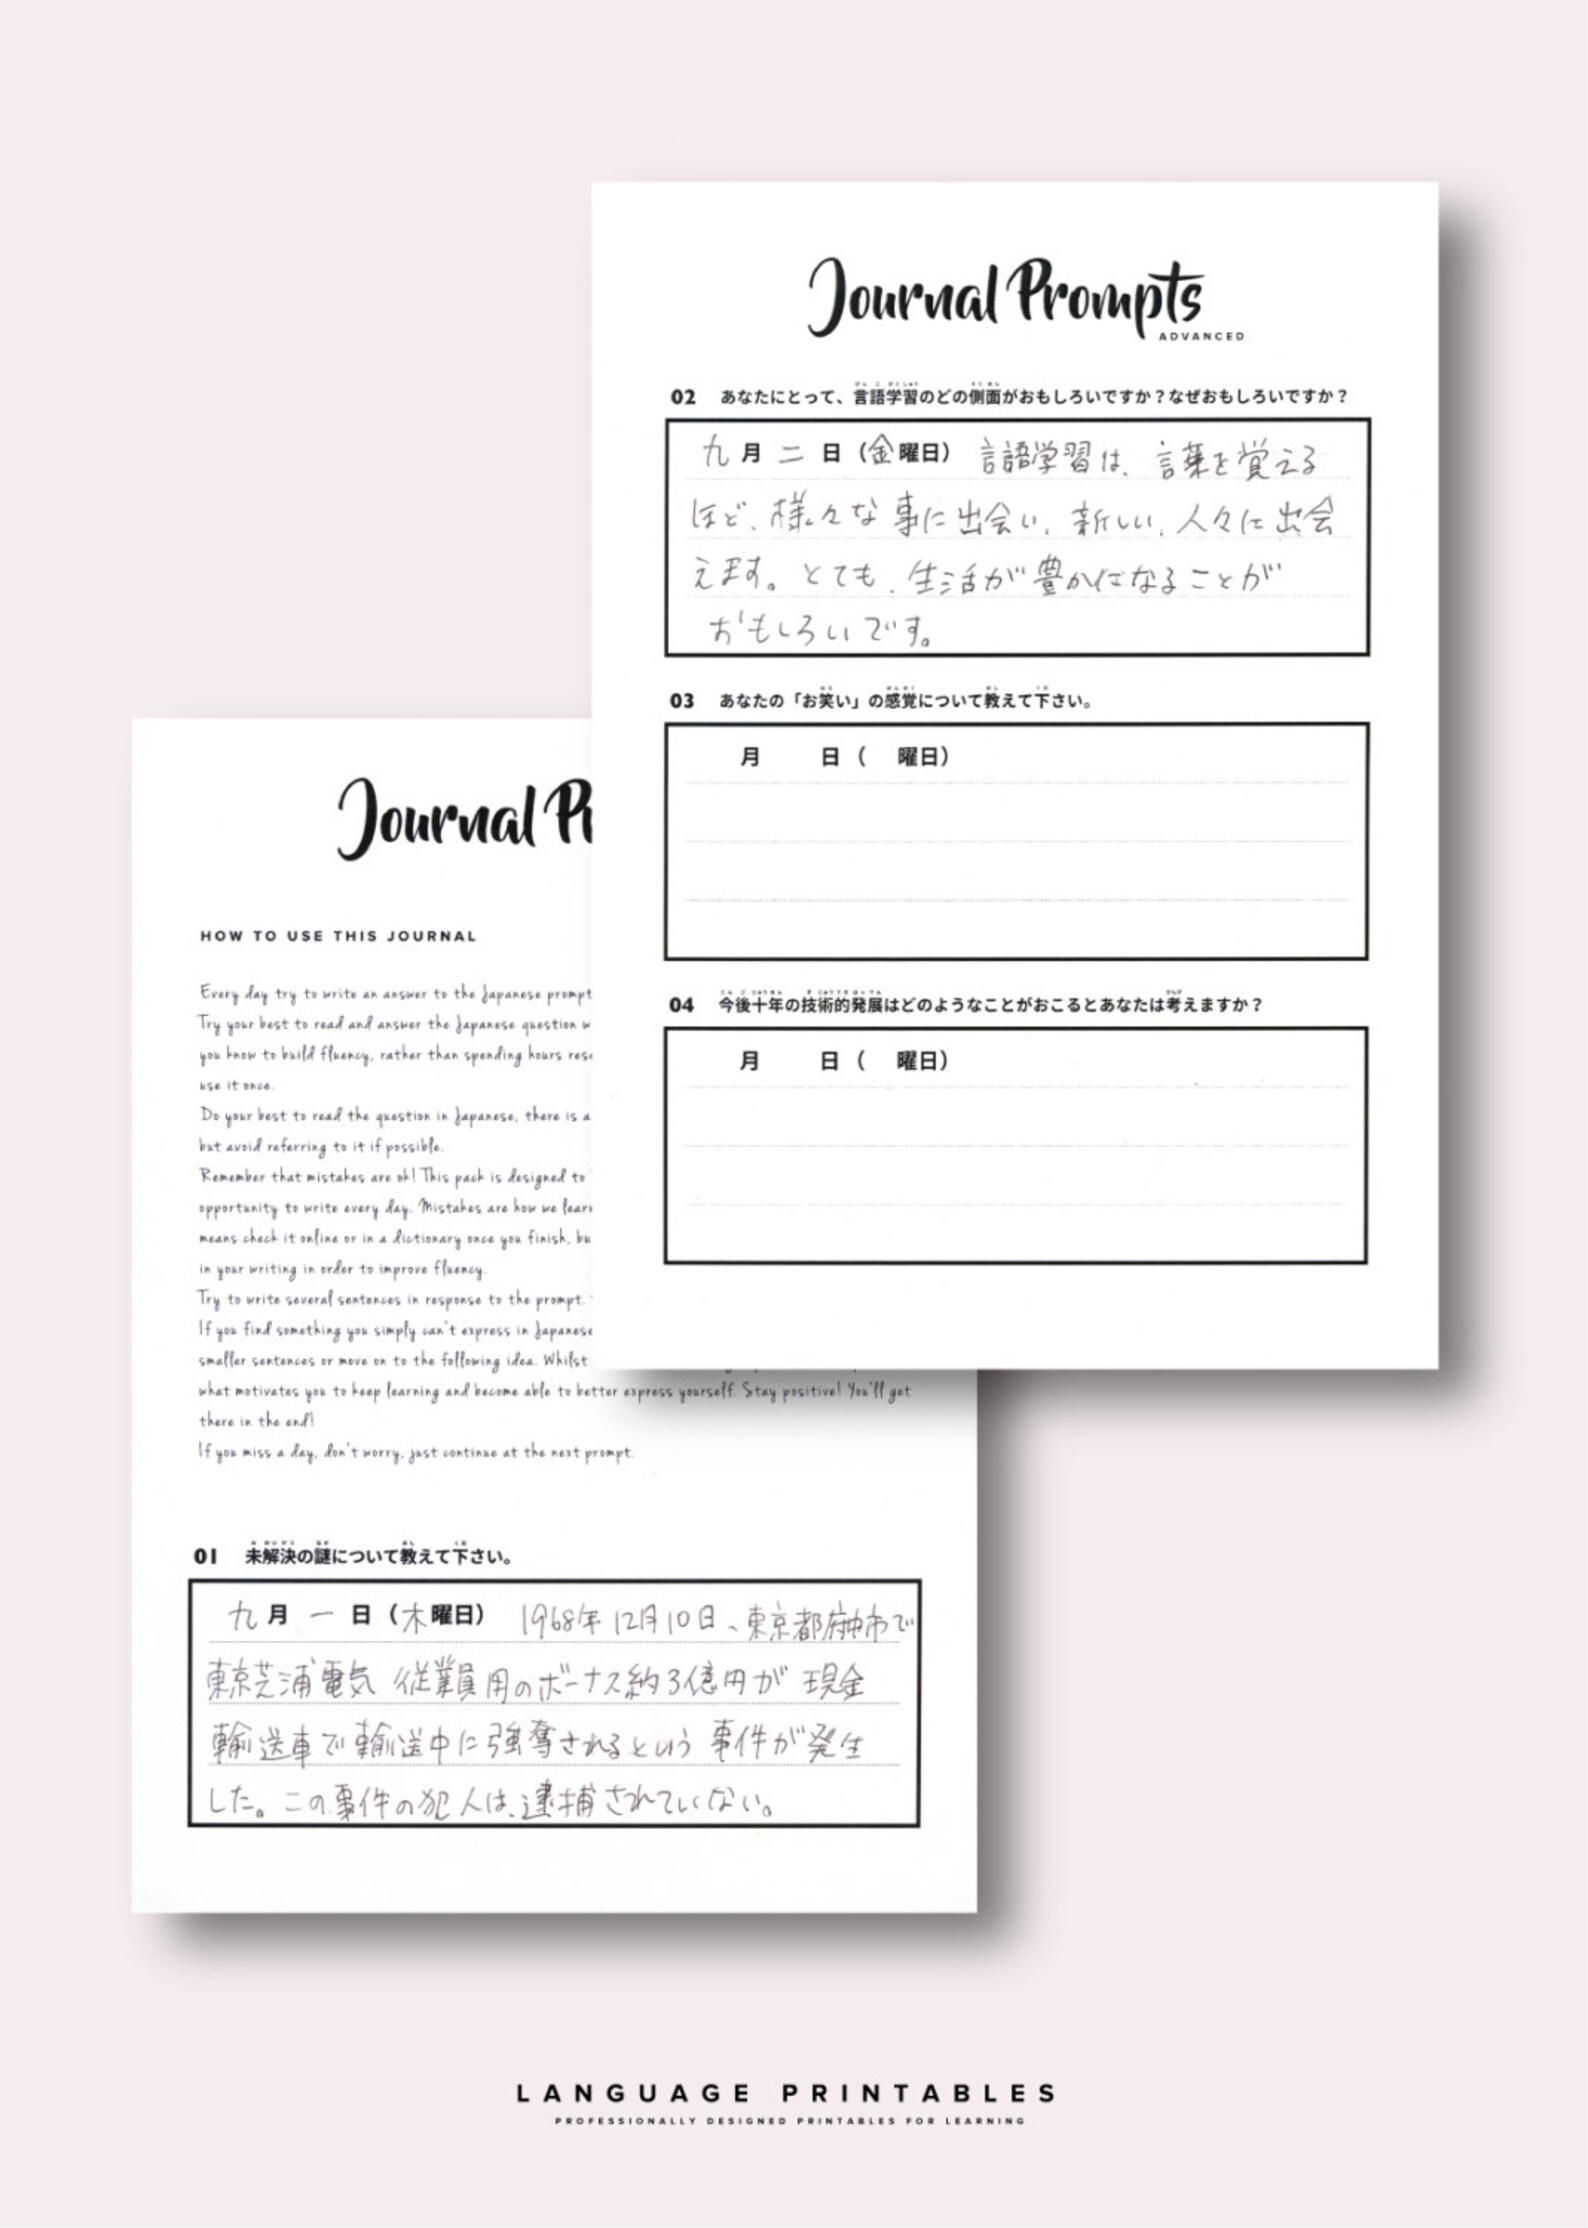 Journal Prompts
ADVANCED
02 あなたにとって、言語学習のどの側面がおもしろいですか？なぜおもしろいですか？
九月二日（金曜日） 言語学習は、言葉を覚える
ほど、様々な事に出会い、新しい、人々に出会
えます。とても、生活が豊かになることが
おもしろいです。
03 あなたの「お笑い」の感覚について教えて下さい。
月 日（ 曜日）
04 今後十年の技術的発展はどのようなことがおこるとあなたは考えますか？
月 日（ 曜日）
Journal
HOW TO USE THIS JOURNAL
Every day try to write an answer to the Japanese prompt
Try your best to read and answer the Japanese question
you know to build fluency, rather than spending hours
use it once.
Do your best to read the question in Japanese, there is a
but avoid referring to it if possible.
Remember that mistakes are ok! This pack is designed to
opportunity to write every day. Mistakes are how we learn
means check it online or in a dictionary once you finish,
in your writing in order to improve fluency.
Try to write several sentences in response to the prompt.
If you find something you simply can't express in Japanese
smaller sentences or move on to the following idea. Whilst
what motivates you to keep learning and become able to better express yourself. Stay positive! You'll get
there in the end!
If you miss a day, don't worry, just continue at the next prompt.
01 未解決の謎について教えて下さい。
九月一日（木曜日） 1968年12月10日、東京都府中市で
東京芝浦電気 従業員用のボーナス約3億円が 現金
輸送車で輸送中に強奪されるという 事件が発生
した。この事件の犯人は、逮捕されていない。
LANGUAGE PRINTABLES
PROFESSIONALLY DESIGNED PRINTABLES FOR LEARNING